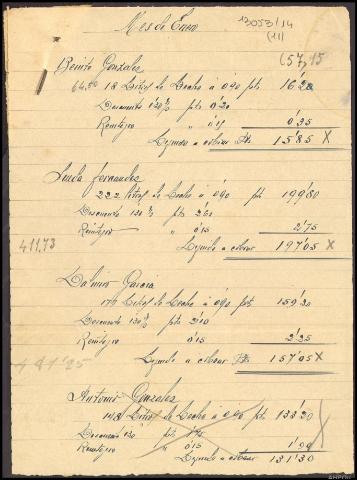 Mes de Enero
13053/14
(11)
(57,15
Benito Gonzalez
18 Litros de Leche á 0'90 pts 16'20
Descuento 1'30 % pts 0'20
Reintegro " 0'15 0'35
Liquido a cobrar Pts. 15'85 X
fernandez
222 litros de Leche á 0'90 pts 199'80
Descuento 1'30 % pts 2'60
Reintegro " 0'15 2'75
Liquido a cobrar 197'05 X
411,73
Garcia
Litros de Leche á 0'90 pts 159'30
Descuento 1'30 % pts 2'10
Reintegro 0'15 2'25
Liquido a cobrar Pts. 157'05 X
Antonio Gonzalez
148 Litros de Leche á 0'90 pts 133'20
Descuento 1'30 pts
Reintegro " 0'15 1'90
Liquido a cobrar 131'30